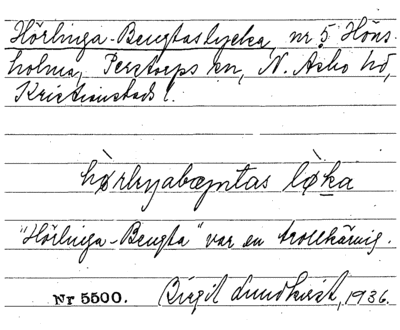 Hörlinga-Bengtas lycka, nr 5 Höns-
holma, Perstorps sn, N. Åsbo hd,
Kristianstads l.
hø̀rlinabæŋtas lø̀ka
"Hörlinga-Bengta" var en trollkäring.
Nr 5500. Birgit Lundkvist, 1936.